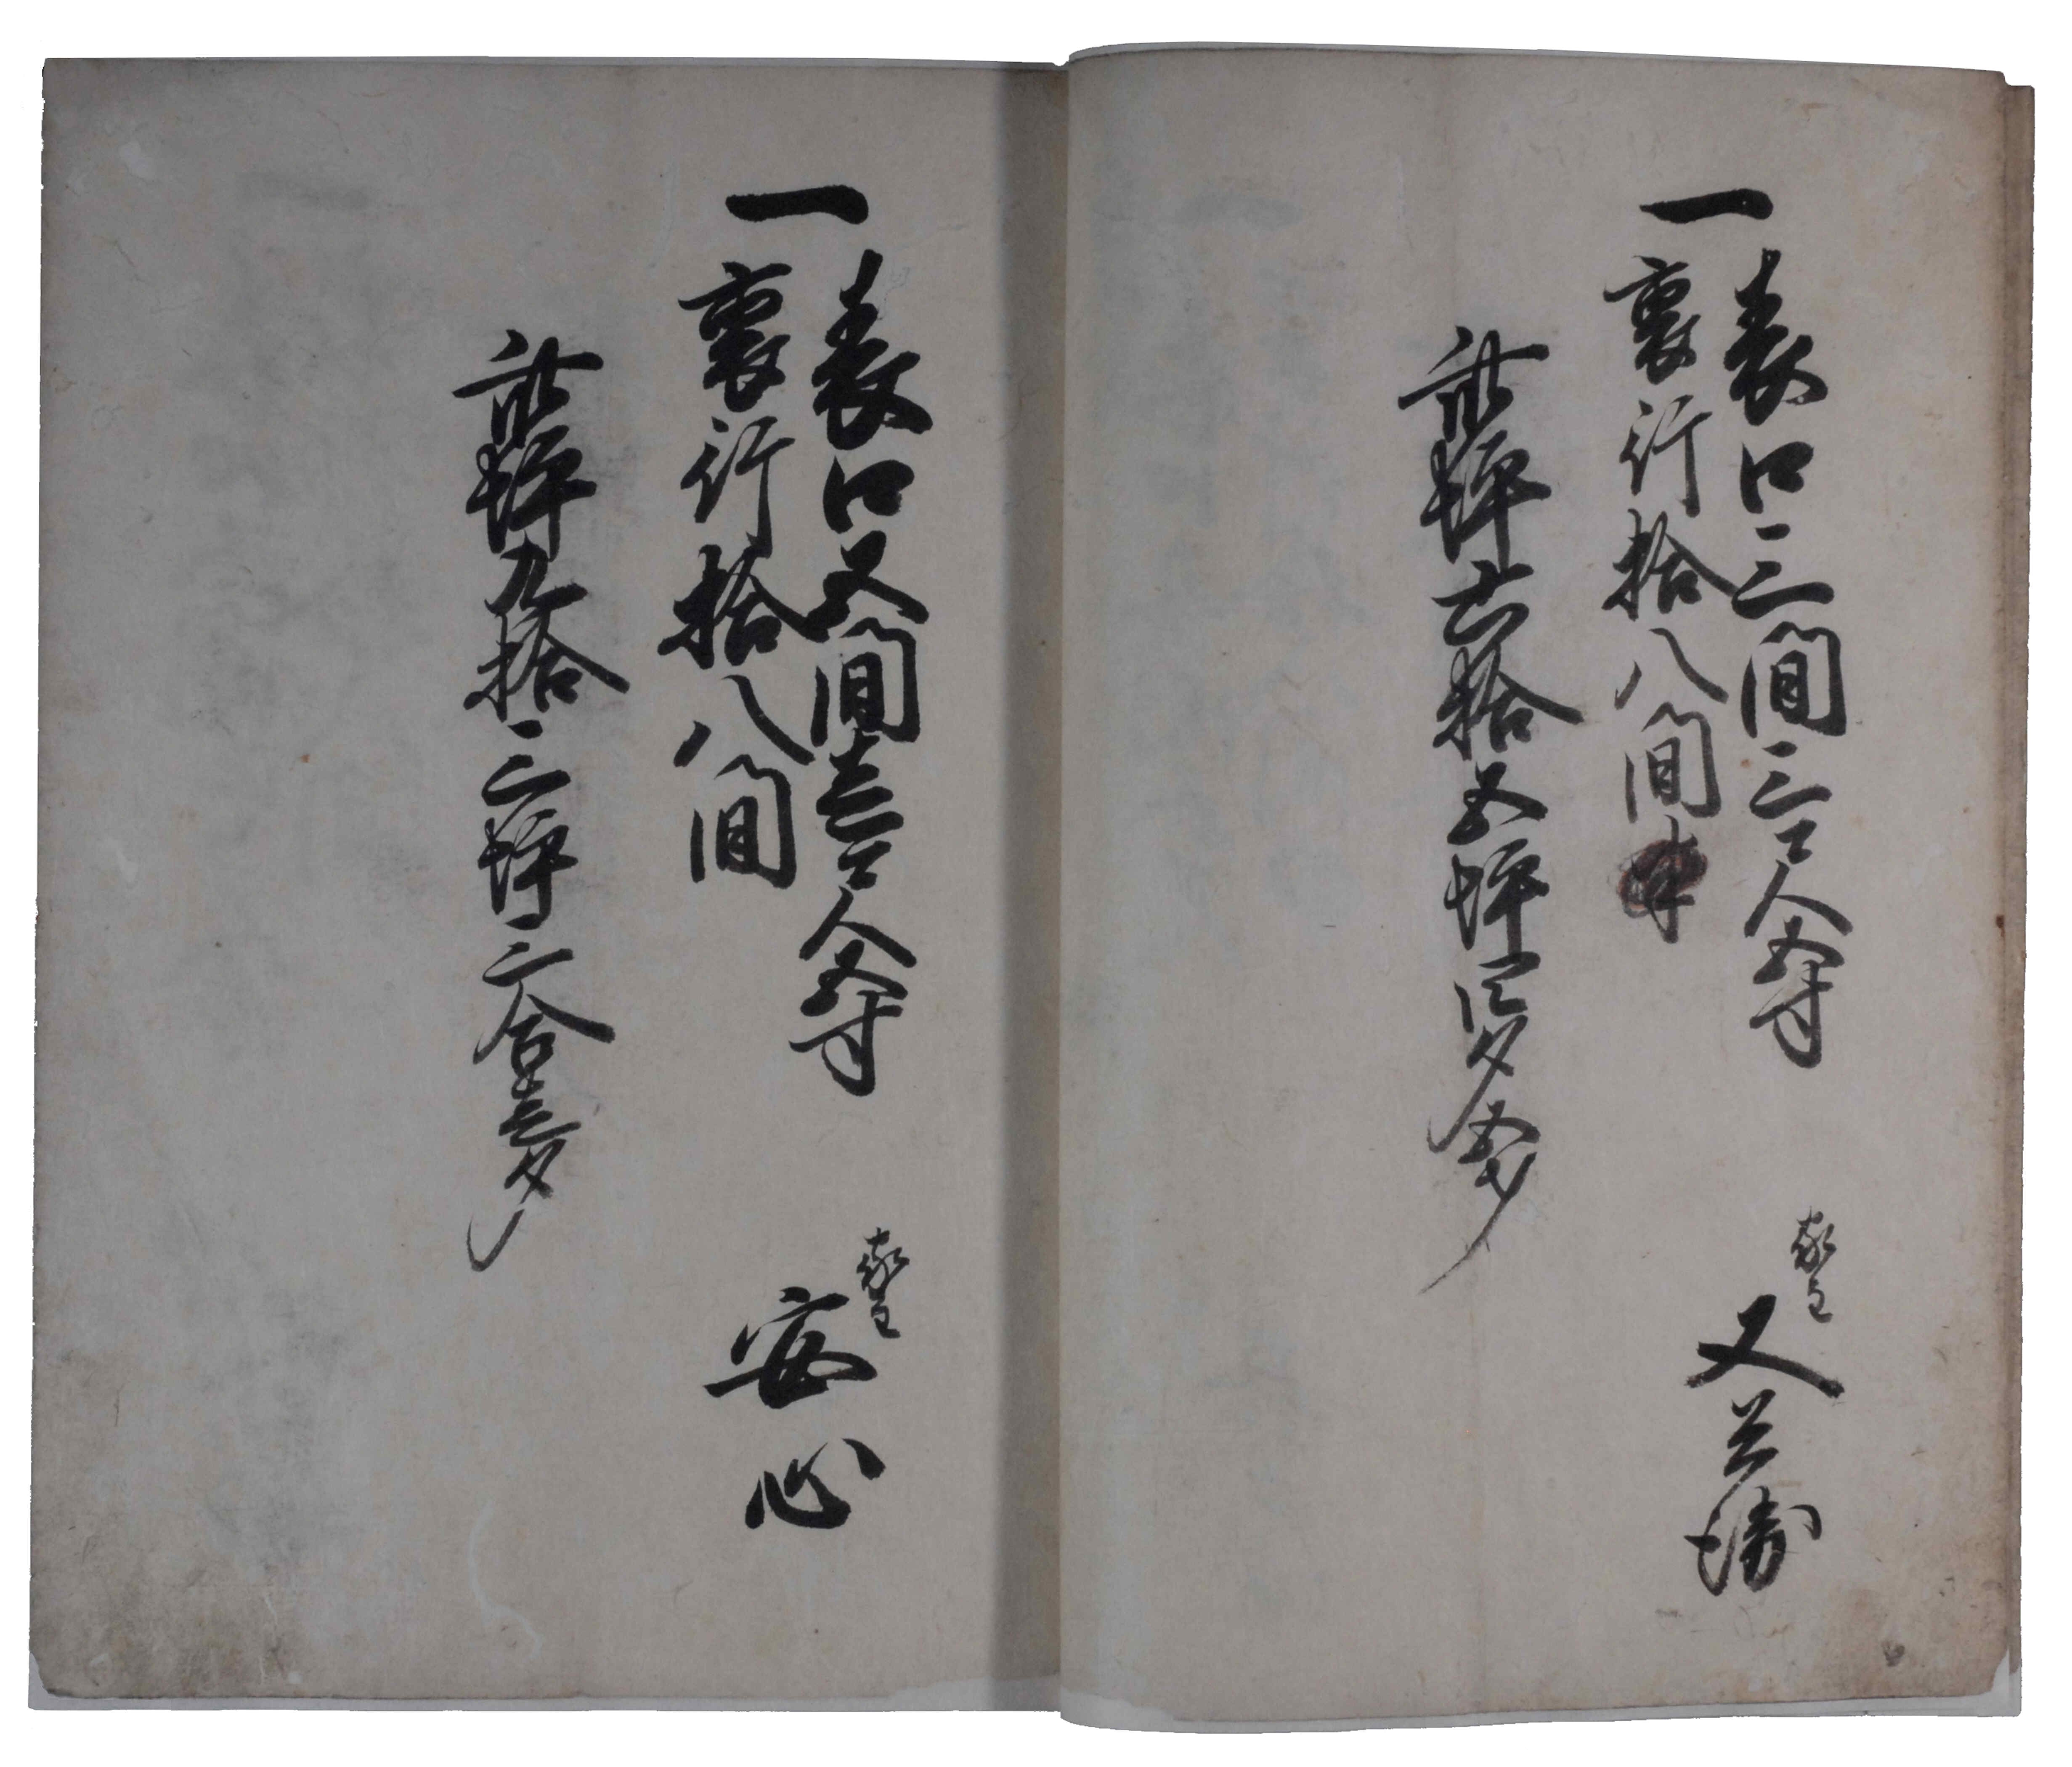 一 表口三間三尺五寸
裏行拾八間半
此坪六拾五坪四夕五才
家主
又兵衛
一 表口五間壱尺五寸
裏行拾八間
此坪九拾三坪二合壱夕
家主
安心